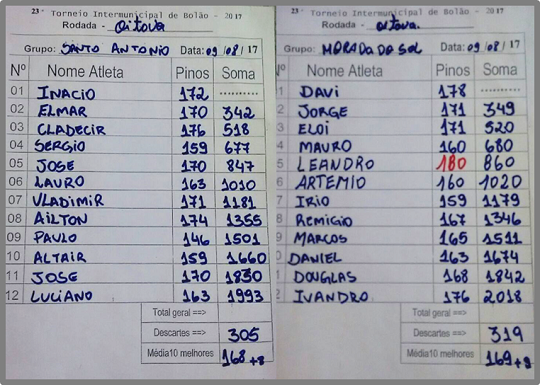 23ª Torneio Intermunicipal de Bolão - 2017
Rodada - oitava
Grupo: SANTO ANTONIO Data: 09/08/17
Nº Nome Atleta Pinos Soma
01 INACIO 172 ..........
02 ELMAR 170 342
03 CLADECIR 176 518
04 SERGIO 159 677
05 JOSE 170 847
06 LAURO 163 1010
07 VLADIMIR 171 1181
08 AILTON 174 1355
09 PAULO 146 1501
10 ALTAIR 159 1660
11 JOSE 170 1830
12 LUCIANO 163 1993
Total geral ==>
Descartes ==> 305
Média10 melhores 168+8
23ª Torneio Intermunicipal de Bolão - 2017
Rodada - oitava.
Grupo: MORADA DO SOL Data: 09/08/17
Nº Nome Atleta Pinos Soma
1 DAVI 178 ..........
2 JORGE 171 349
3 ELOI 171 520
4 MAURO 160 680
5 LEANDRO 180 860
6 ARTEMIO 160 1020
7 IRIO 159 1179
8 REMIGIO 167 1346
9 MARCOS 165 1511
0 DANIEL 163 1674
1 DOUGLAS 168 1842
2 IVANDRO 176 2018
Total geral ==>
Descartes ==> 319
Média10 melhores 169+9